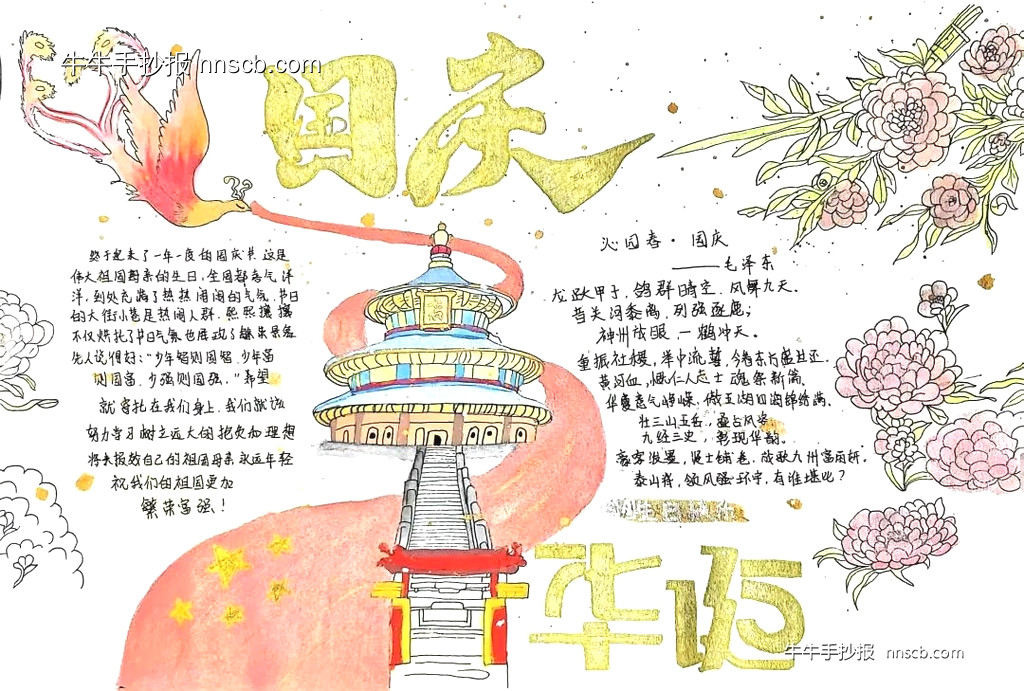 牛牛手抄报 nnscb.com
国庆
终于迎来了一年一度的国庆节 这是
伟大祖国母亲的生日,全国都喜气洋
洋,到处充满了热热闹闹的气氛,节日
的大街小巷是热闹人群,熙熙攘攘
不仅烘托了节日气氛也展现了繁荣景象
先人说得好:“少年智则国智,少年富
则国富,少强则国强。”希望
就寄托在我们身上,我们就该
努力学习树立远大的抱负和理想
将来报效自己的祖国母亲永远年轻
祝我们的祖国更加
繁荣富强!
沁园春·国庆
——毛泽东
龙跃甲子,鸽群晴空,凤舞九天。
昔关河黍离,列强逐鹿;
神州放眼,一鹤冲天。
重振社稷,举中流誓,今看东方盛世还。
黄河血,慨仁人志士 魂祭新篇
华夏意气峥嵘,傲五湖四海锦绣满。
壮三山五岳,叠古风姿
九经三史,彰现华韵。
豪客浪墨,贤士铺卷,放歌九州富丽轩。
泰山脊,领风骚环宇,有谁堪比?
华诞
牛牛手抄报 nnscb.com